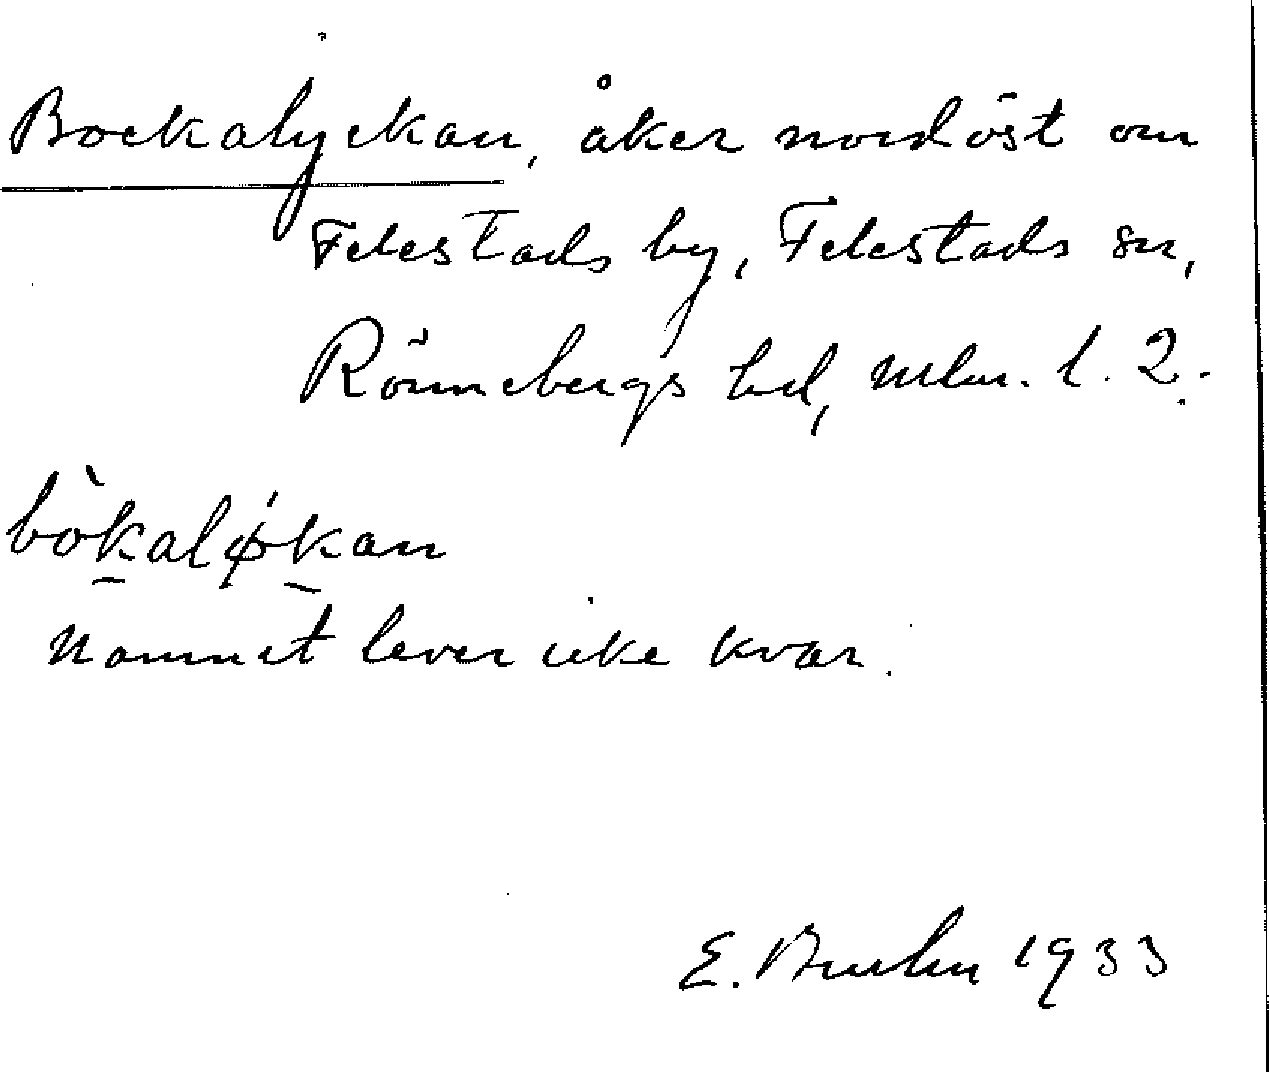 Bockalyckan, åker nordöst om
Felestads by, Felestads sn,
Rönnebergs hd, Mlm. l. 2.
bòkalǿkan
Namnet lever icke kvar.
E. Bruhn 1933